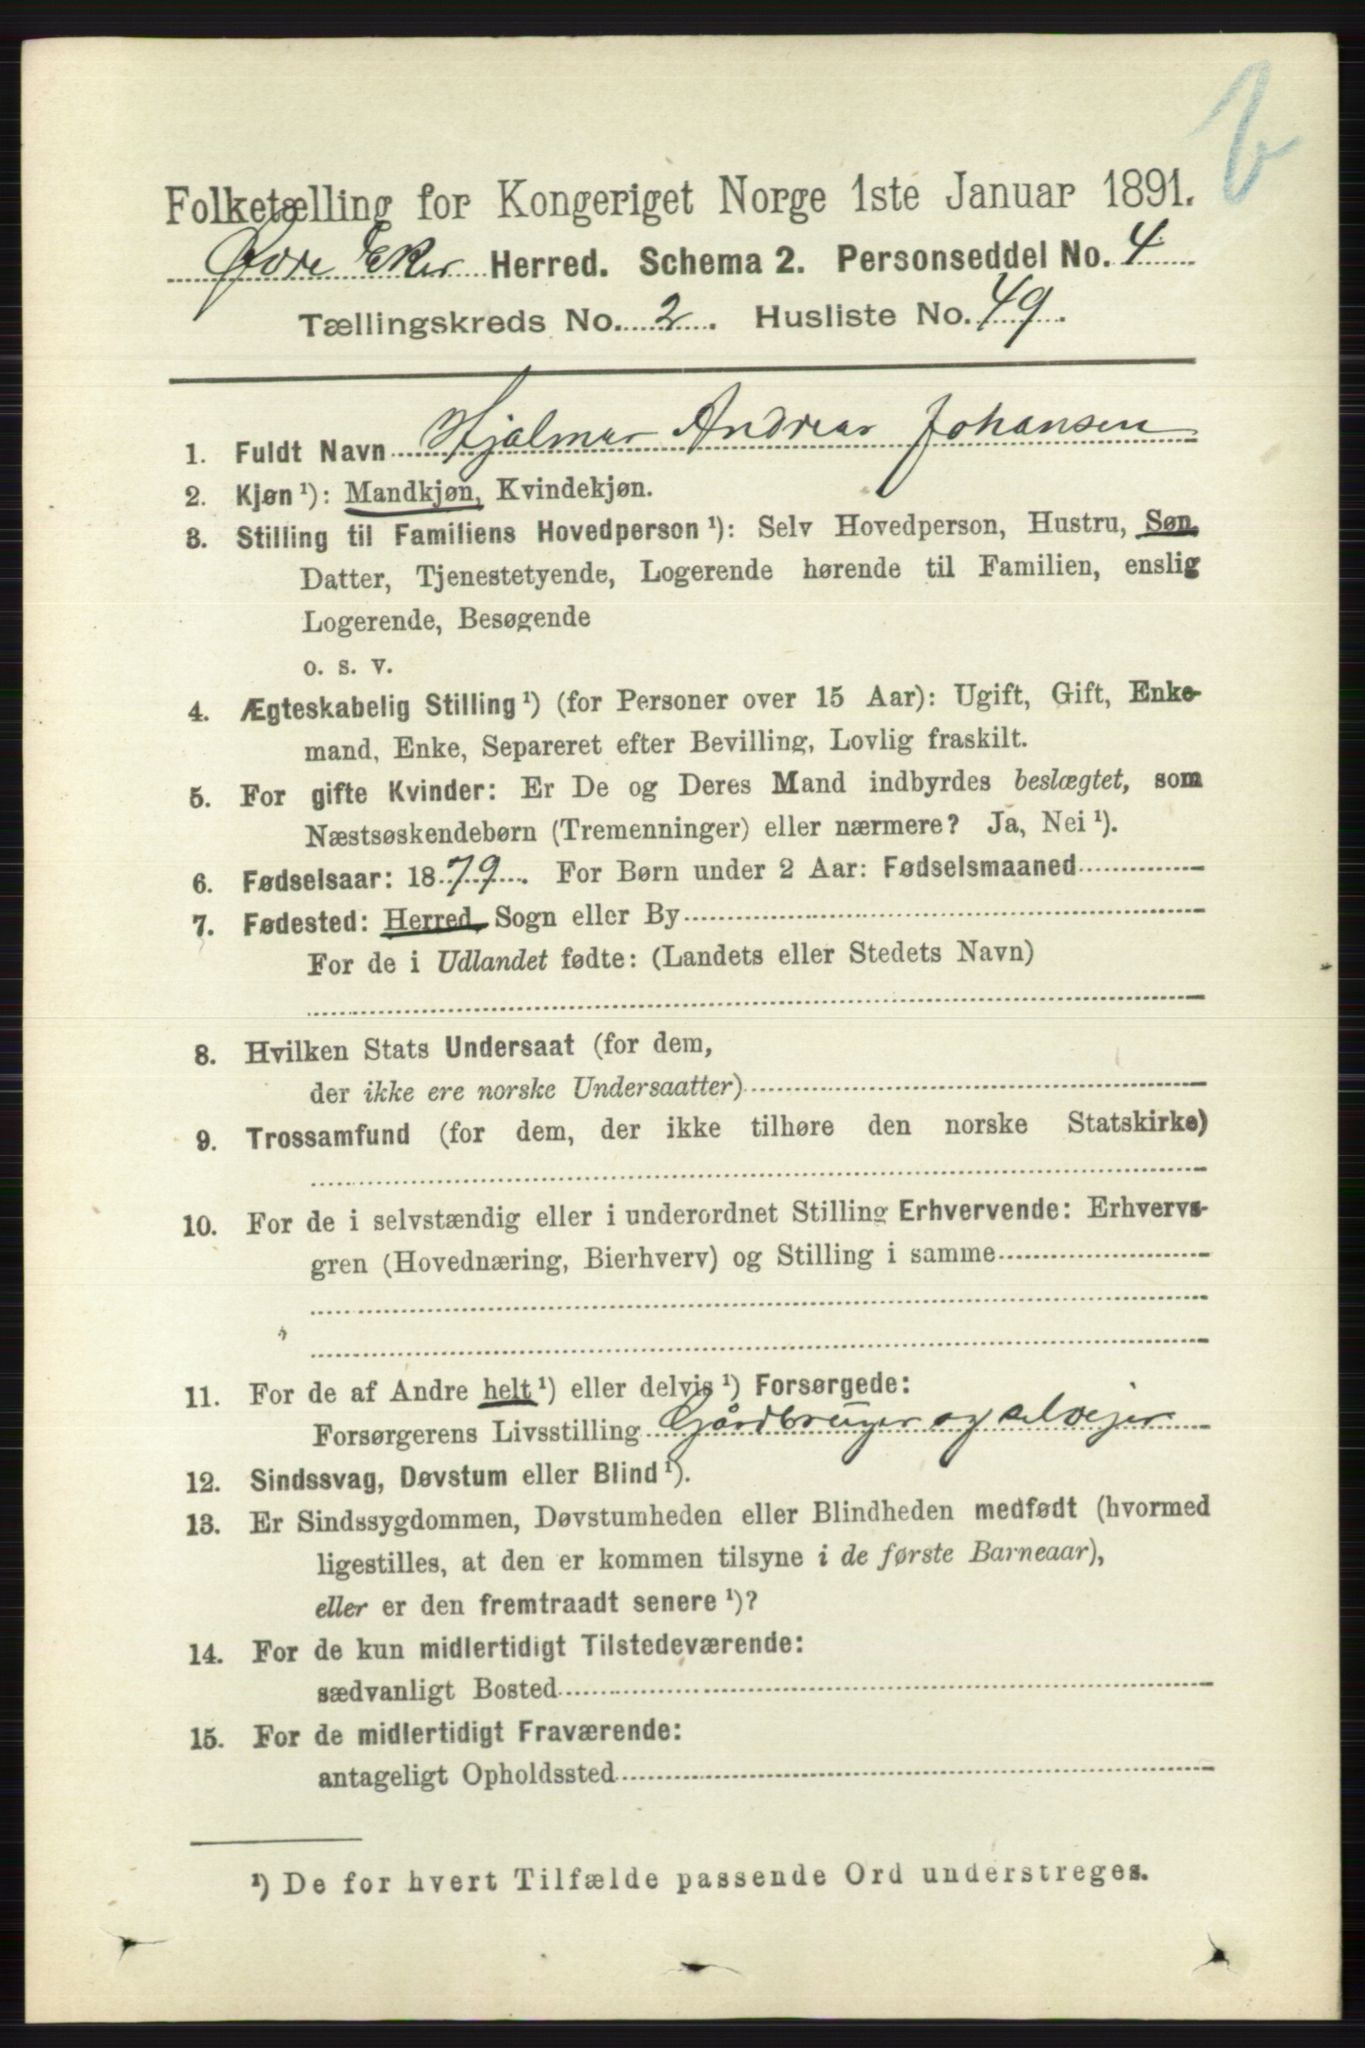 b
Folketælling for Kongeriget Norge 1ste Januar 1891.
Øvre Eker Herred. Schema 2. Personseddel No. 4
Tællingskreds No. 2. Husliste No. 49.
1. Fuldt Navn Hjalmar Andreas Johansen
2. Kjøn ¹): Mandkjøn, Kvindekjøn.
3. Stilling til Familiens Hovedperson ¹): Selv Hovedperson, Hustru, Søn,
Datter, Tjenestetyende, Logerende hørende til Familien, enslig
Logerende, Besøgende
o. s. v.
4. Ægteskabelig Stilling ¹) (for Personer over 15 Aar): Ugift, Gift, Enke-
mand, Enke, Separeret efter Bevilling, Lovlig fraskilt.
5. For gifte Kvinder: Er De og Deres Mand indbyrdes beslægtet, som
Næstsøskendebørn (Tremenninger) eller nærmere? Ja, Nei ¹).
6. Fødselsaar: 1879. For Børn under 2 Aar: Fødselsmaaned
7. Fødested: Herred, Sogn eller By
For de i Udlandet fødte: (Landets eller Stedets Navn)
8. Hvilken Stats Undersaat (for dem,
der ikke ere norske Undersaatter)
9. Trossamfund (for dem, der ikke tilhøre den norske Statskirke)
10. For de i selvstændig eller i underordnet Stilling Erhvervende: Erhvervs-
gren (Hovednæring, Bierhverv) og Stilling i samme
11. For de af Andre helt ¹) eller delvis ¹) Forsørgede:
Forsørgerens Livsstilling Gårdbruger og selveier
12. Sindssvag, Døvstum eller Blind ¹).
13. Er Sindssygdommen, Døvstumheden eller Blindheden medfødt (hvormed
ligestilles, at den er kommen tilsyne i de første Barneaar),
eller er den fremtraadt senere ¹)?
14. For de kun midlertidigt Tilstedeværende:
sædvanligt Bosted
15. For de midlertidigt Fraværende:
antageligt Opholdssted
¹) De for hvert Tilfælde passende Ord understreges.